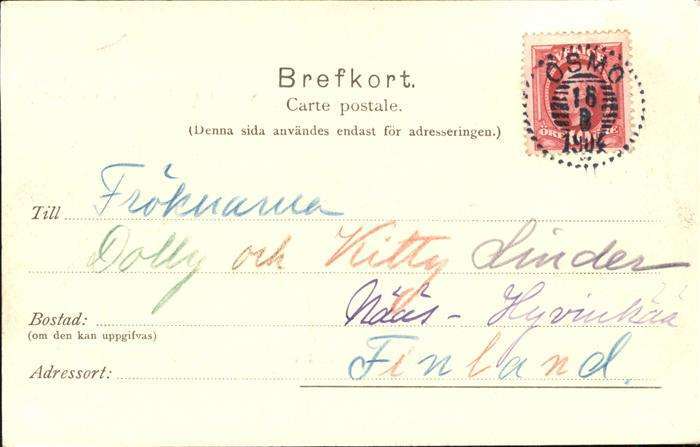 Brefkort.
Carte postale.
(Denna sida användes endast för adresseringen.)
ÖSMO
16
8
1904
ÖRE
Till Fröknarna
Dolly och Kitty Linder
Bostad: Nääs - Hyvinkää
(om den kan uppgifvas)
Adressort: Finland.